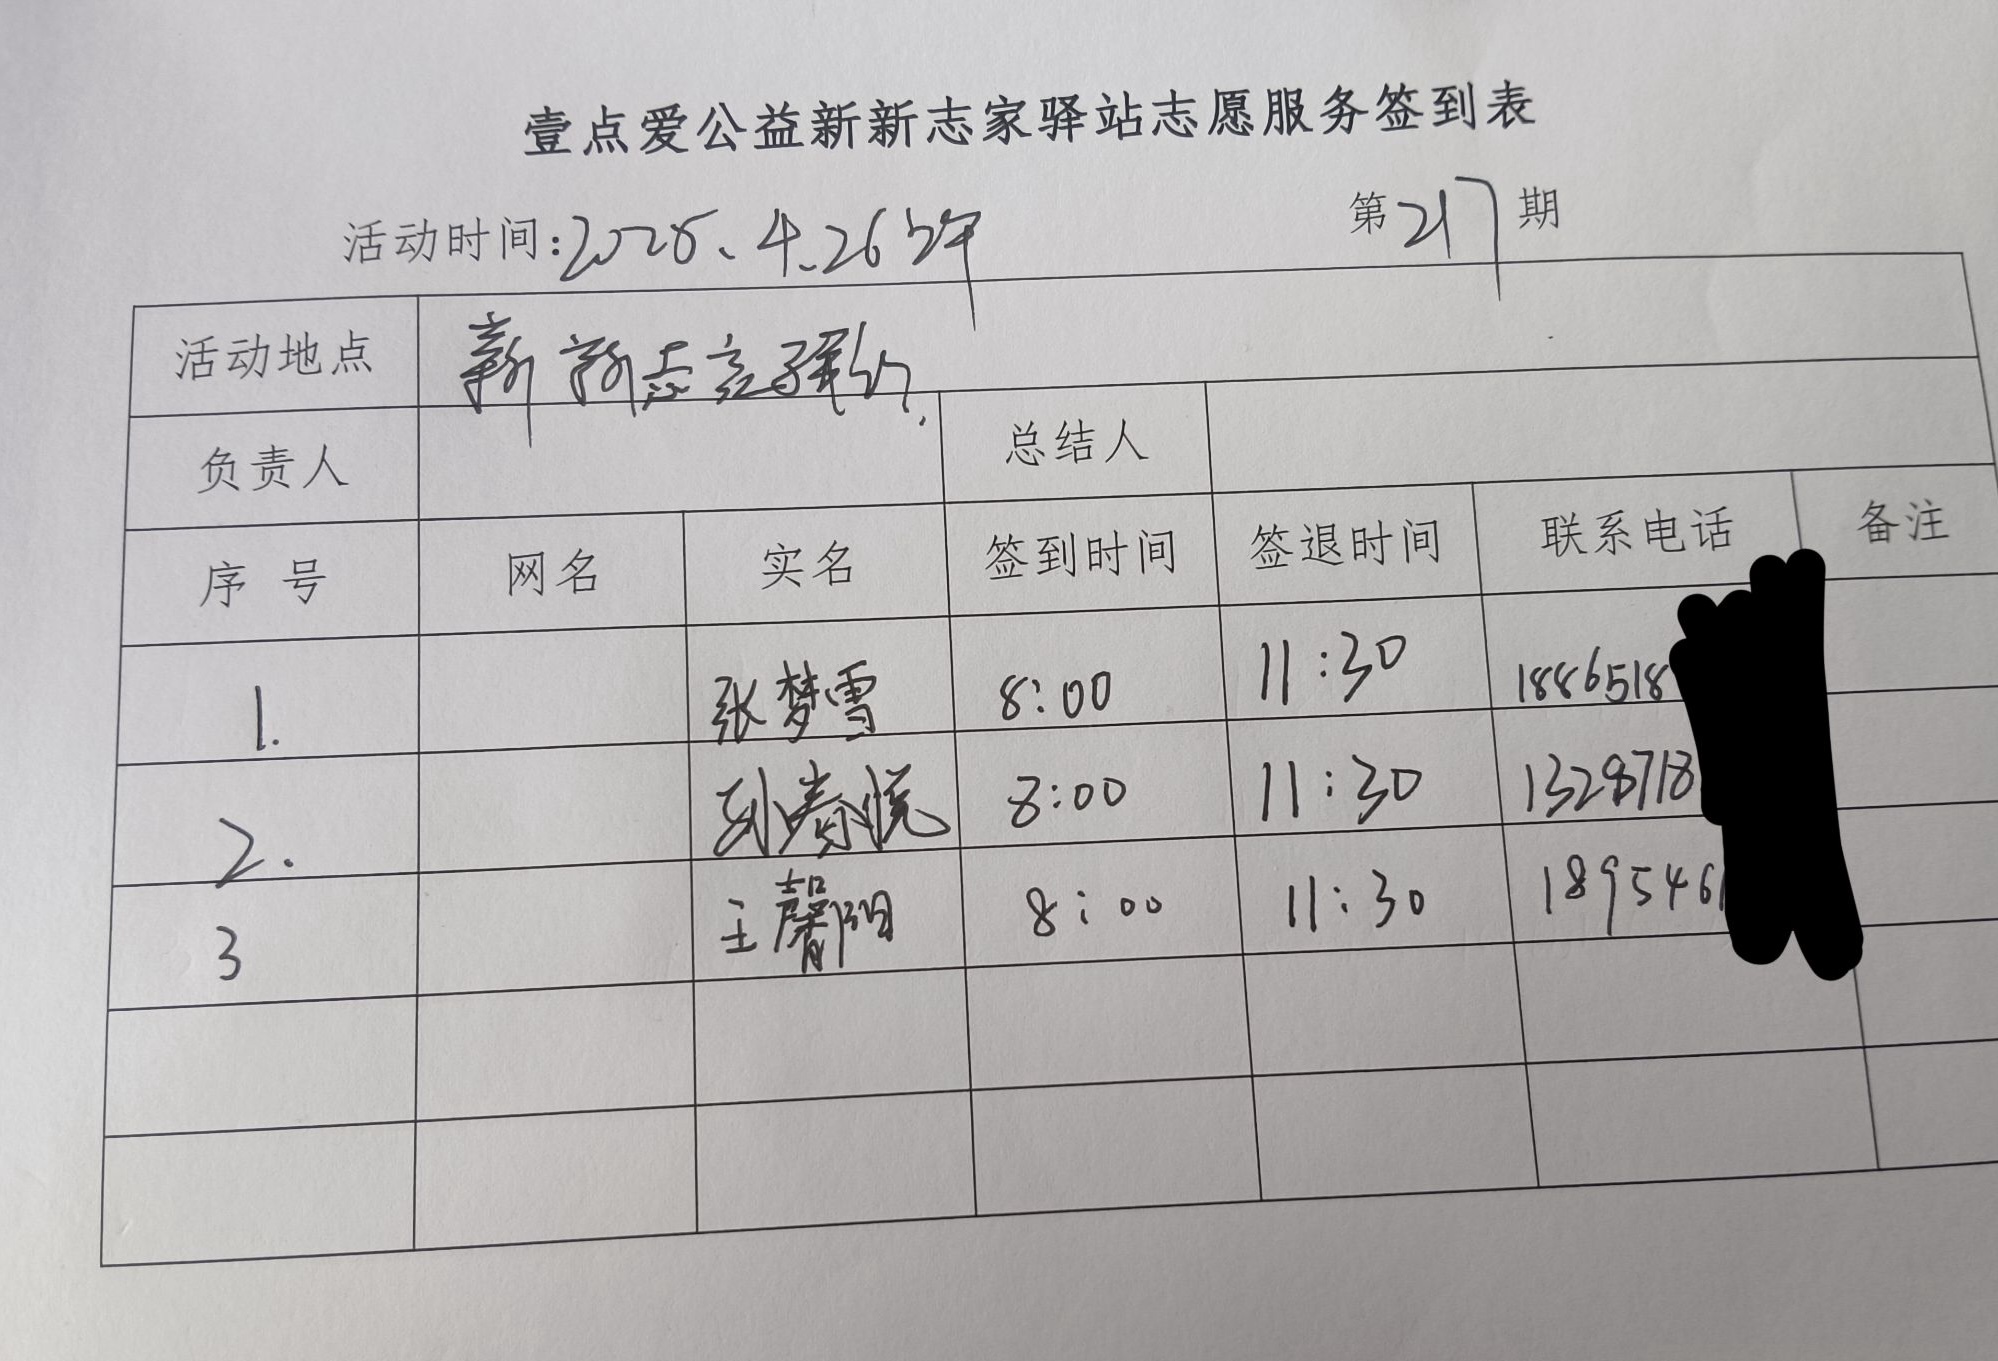 壹点爱公益新新志家驿站志愿服务签到表
活动时间:2025.4.26上午 第217期
活动地点 新新志家驿站
负责人 总结人
序号 网名 实名 签到时间 签退时间 联系电话 备注
1. 张梦雪 8:00 11:30 1886518
2. 刘春悦 8:00 11:30 1328718
3 王馨阳 8:00 11:30 1895461